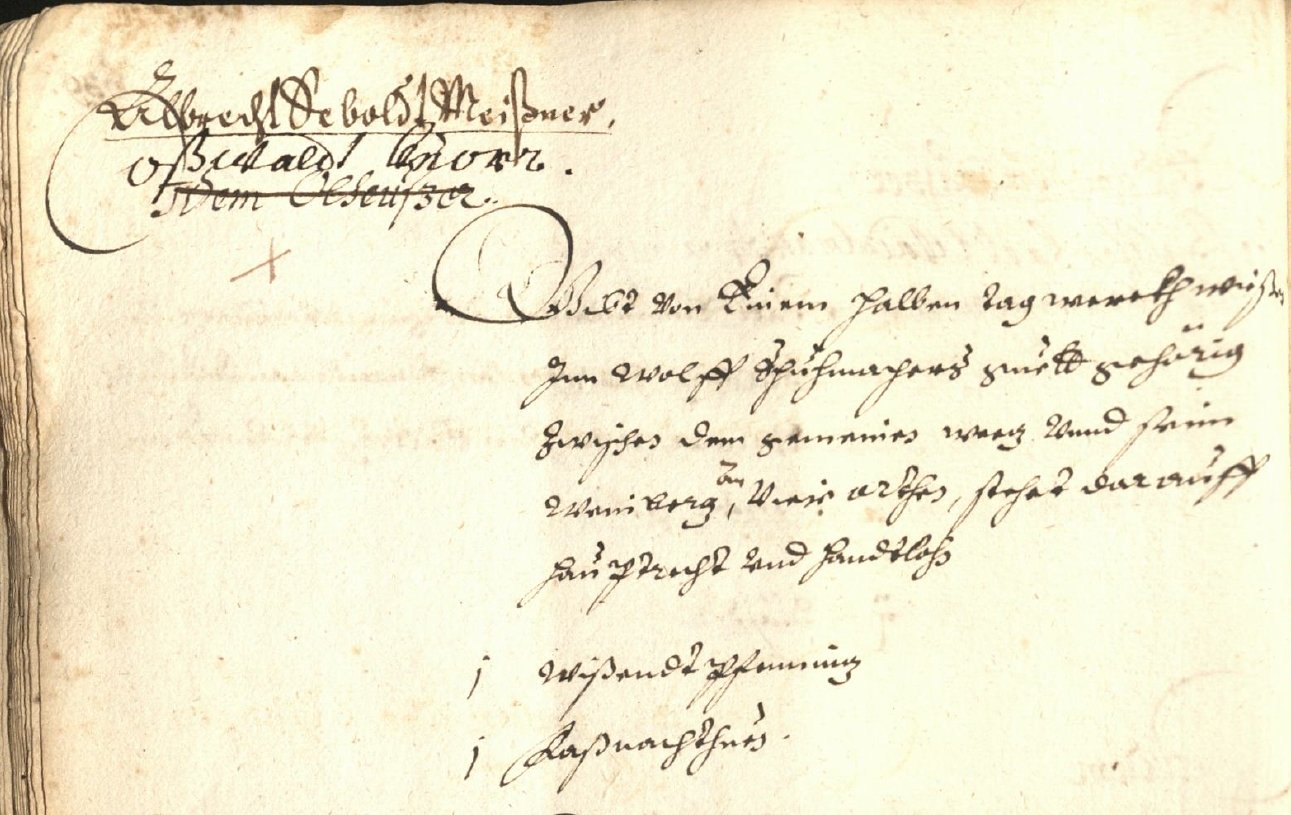 Albrecht Seboldt Meißner.
Oßwaldt Knorr.
Idem Olheußer.
Gibt von Einem halben tag werckh wießen
Inn Wolff Schuhmachers guett gehörig
zwischen dem gemeinen weeg vnnd seim
Weinberg, Am orthen, stehet darauff
hauptrecht vnd handtlohn
j wißendt Pfenning
j Faßnachthuen.